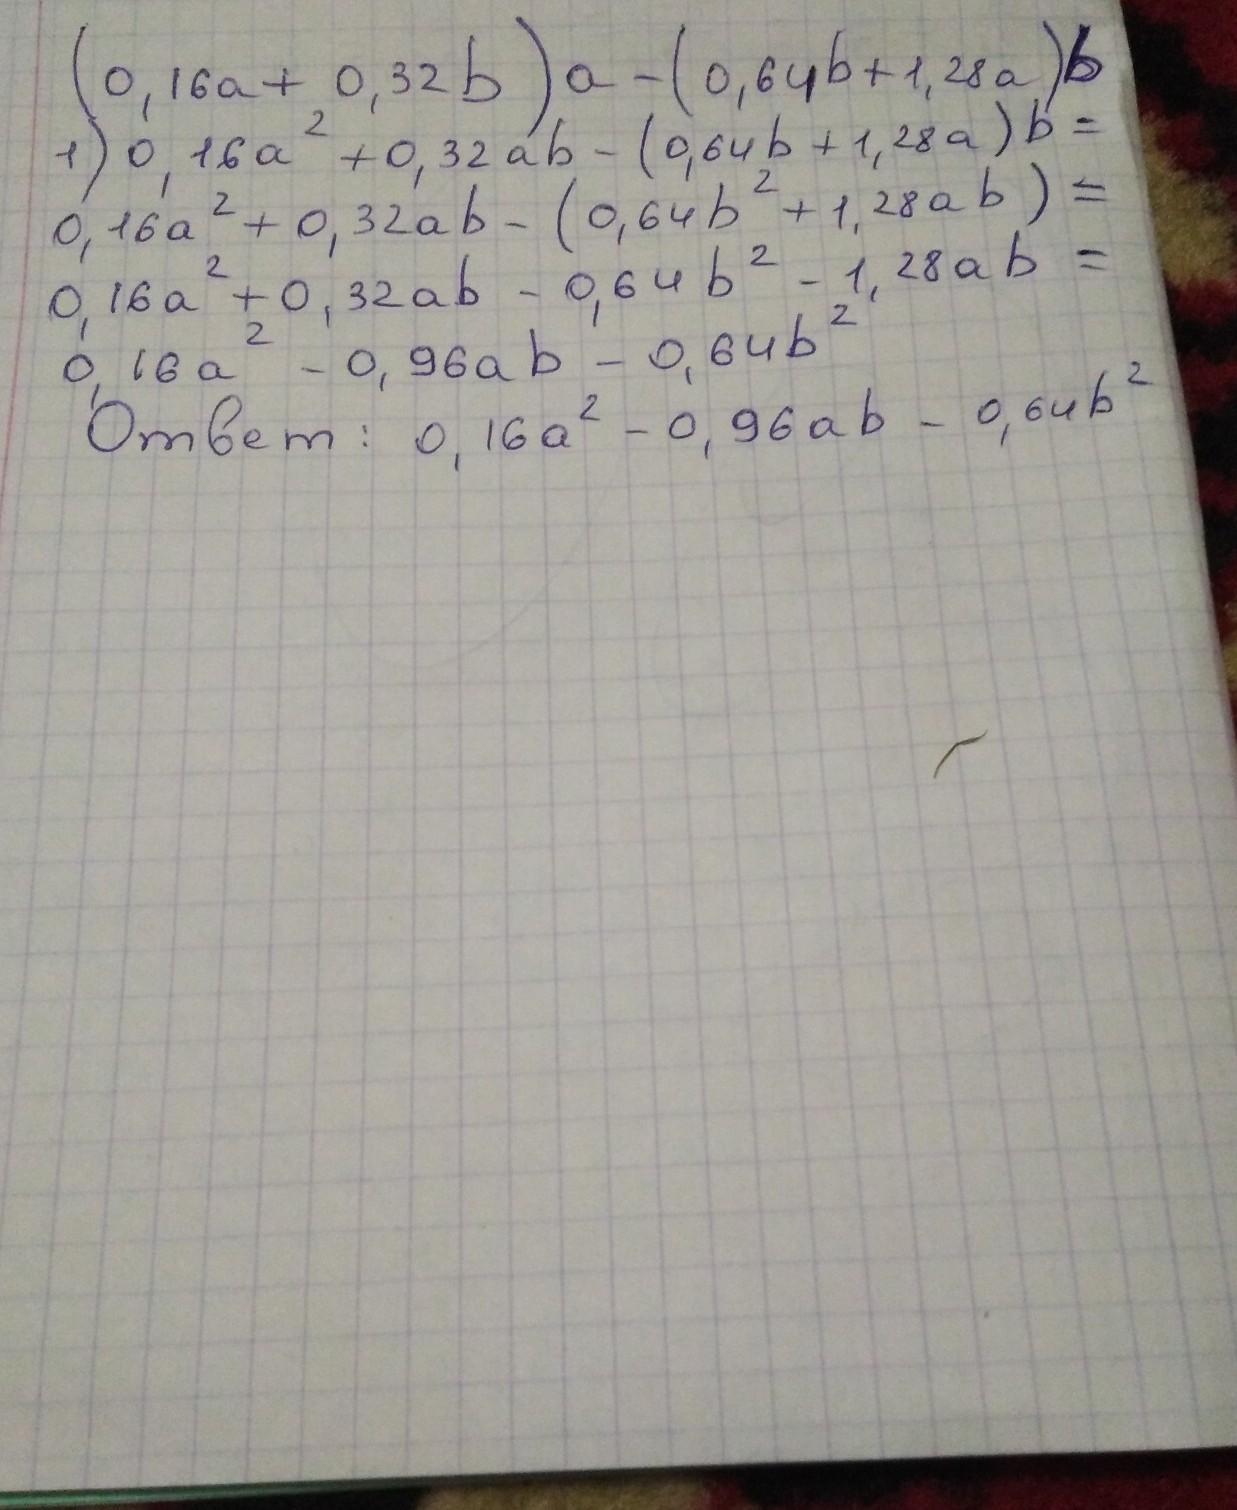 (0,16a + 0,32b)a - (0,64b + 1,28a)b
1) 0,16a² + 0,32ab - (0,64b + 1,28a)b =
0,16a² + 0,32ab - (0,64b² + 1,28ab) =
0,16a² + 0,32ab - 0,64b² - 1,28ab =
0,16a² - 0,96ab - 0,64b²
Ответ: 0,16a² - 0,96ab - 0,64b²